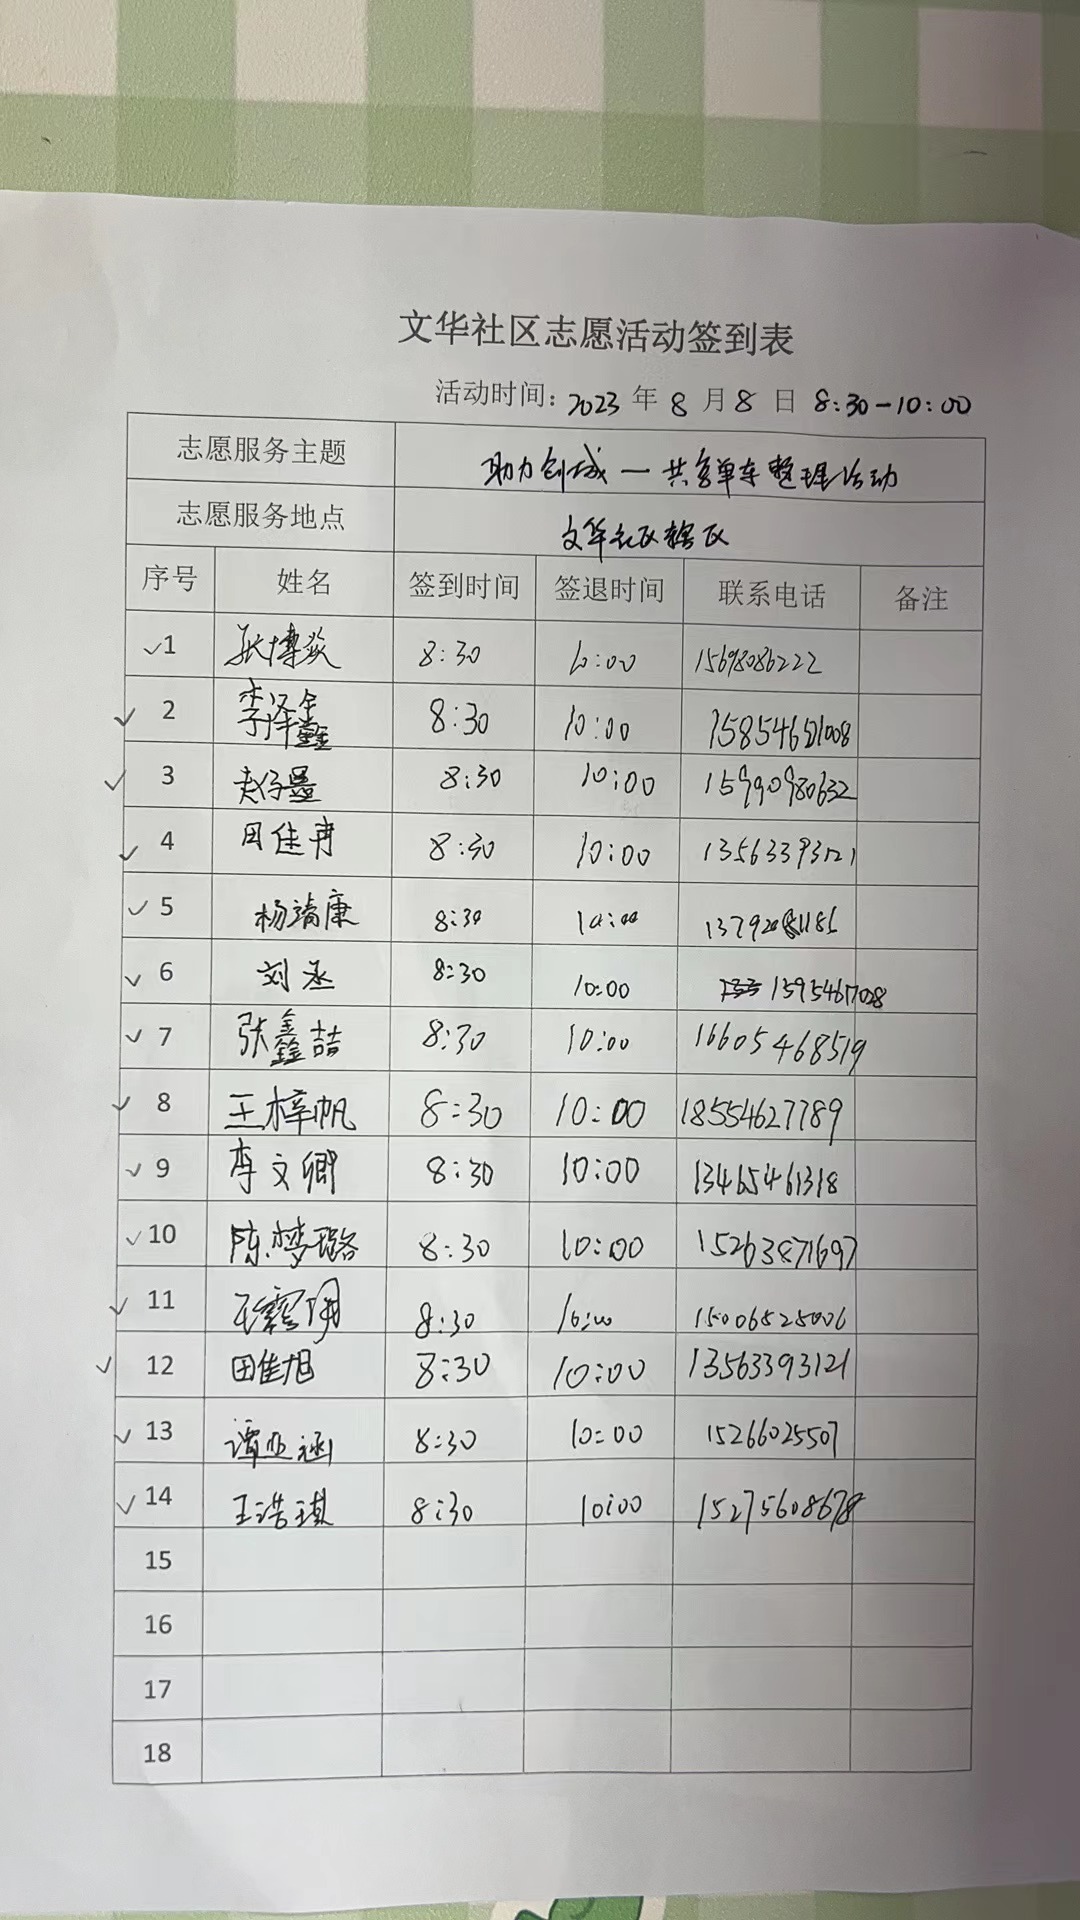 文华社区志愿活动签到表
活动时间：2023 年 8 月 8 日 8:30-10:00
志愿服务主题 助力创城—共享单车整理活动
志愿服务地点 文华社区辖区
序号 姓名 签到时间 签退时间 联系电话 备注
✓1 张博焱 8:30 10:00 15698086222
✓ 2 李泽鑫 8:30 10:00
✓ 3 赵仔墨 8:30 10:00 15990980632
✓ 4 田佳冉 8:30 10:00 13563393121
✓ 5 杨靖康 8:30 10:00
✓ 6 刘丞 8:30 10:00 13954617028
✓ 7 张鑫喆 8:30 10:00 16605468519
✓ 8 王梓帆 8:30 10:00 18554627789
✓ 9 李文卿 8:30 10:00 13465461318
✓ 10 陈梦璐 8:30 10:00 15263871697
✓ 11 8:30 10:00 15006525006
✓ 12 田佳旭 8:30 10:00 13563393121
✓ 13 谭亚涵 8:30 10:00 15266025507
✓ 14 王浩琪 8:30 10:00 15275608678
15
16
17
18